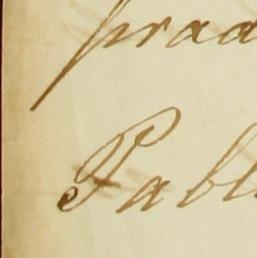 praa
Pabl